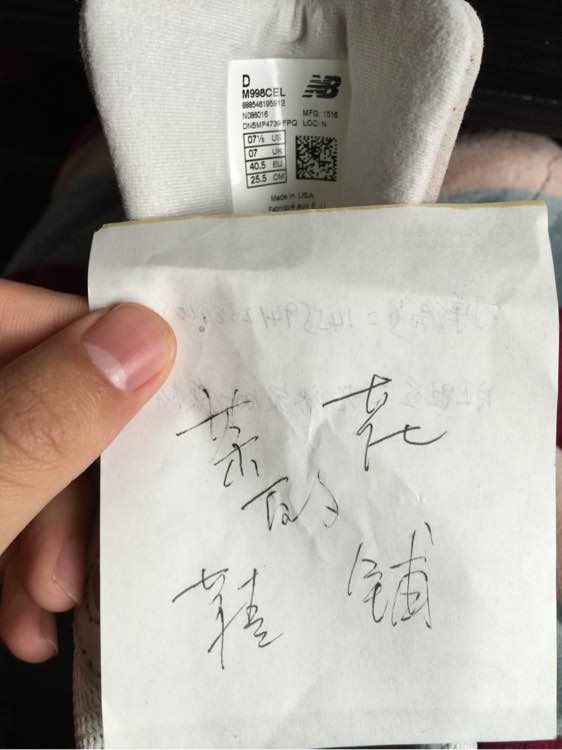 D
M998CEL
NB
888546195912
N086016
MFG: 1516
LOC: N
07½ US
07 UK
40.5 EU
25.5 CM
Made in USA
菜花
的
鞋铺